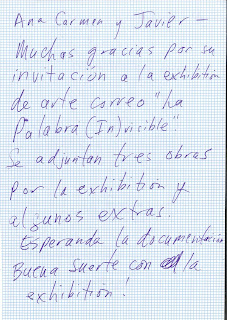 Ana Carmen y Javier —
Muchas gracias por su
invitación a la exhibition
de arte correo "ha
Palabra (In)vicible".
Se adjuntan tres obras
por la exhibition y
algunos extras.
Esperanda la documentación
Buena suerte con la
exhibition!